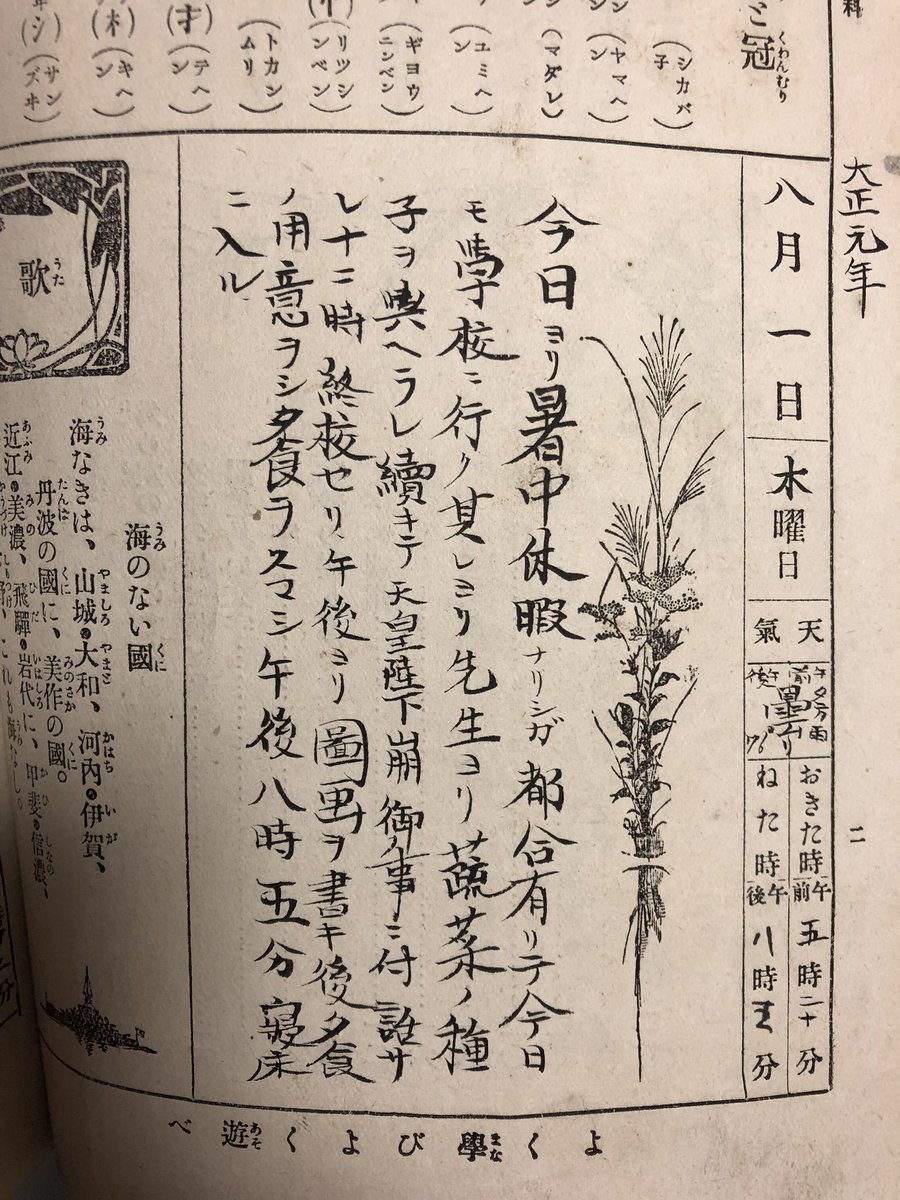 大正元年
科
二
八月一日
木曜日
天氣
午前
午後
おきた時 午前 五時二十分
ねた時 午後 八時五分
今日ヨリ暑中休暇ナリシガ都合有リテ今日
モ學校ニ行ク其レヨリ先生ヨリ蔬菜ノ種
子ヲ與ヘラレ續キテ天皇陛下崩御ノ事ニ付話サ
レ十二時終校セリ午後ヨリ圖畫ヲ書キ後夕食
ノ用意ヲシ夕食ヲスマシ午後八時五分寢床
ニ入ル
よく學びよく遊べ
冠
(シカバ子)
(ヤマヘン)
(マダレ)
(ユミヘン)
(ギヨウニンベン)
(リツシンベン)
(トカンムリ)
(扌)(テヘン)
(木)(キヘン)
歌
海のない國
海なきは、山城、大和、河内、伊賀、
丹波の國に、美作の國。
近江、美濃、飛驒、岩代に、甲斐、信濃、